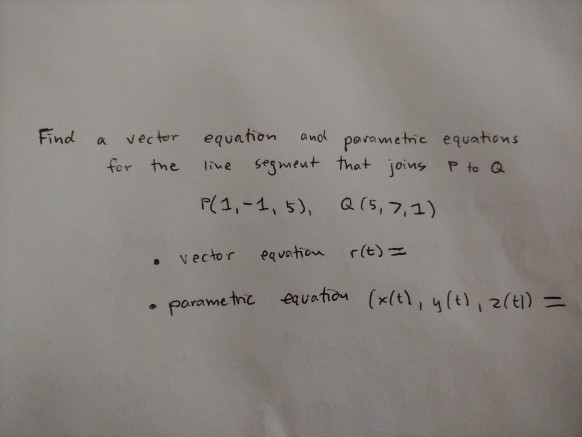 Find a vector equation and parametric equations
for the line segment that joins P to Q
P(1,-1, 5), Q (5,7,1)
• vector equation r(t) =
• parametric equation (x(t), y(t), z(t)) =